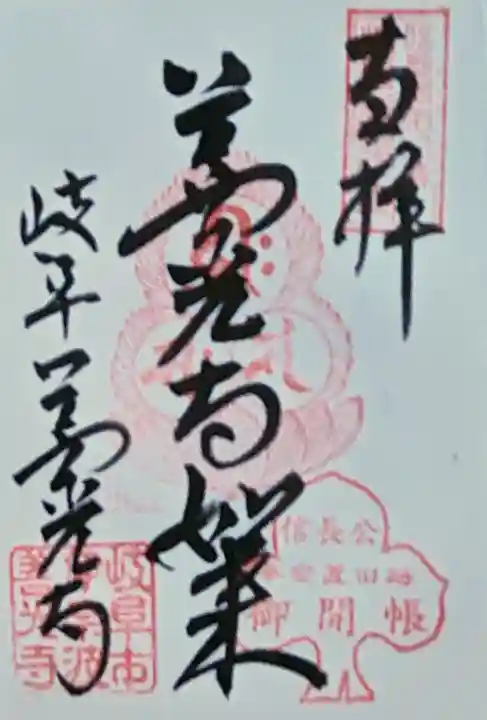 奉拝
善光寺如来
岐阜善光寺
信長公
御開帳
岐阜市
伊奈波
善光寺